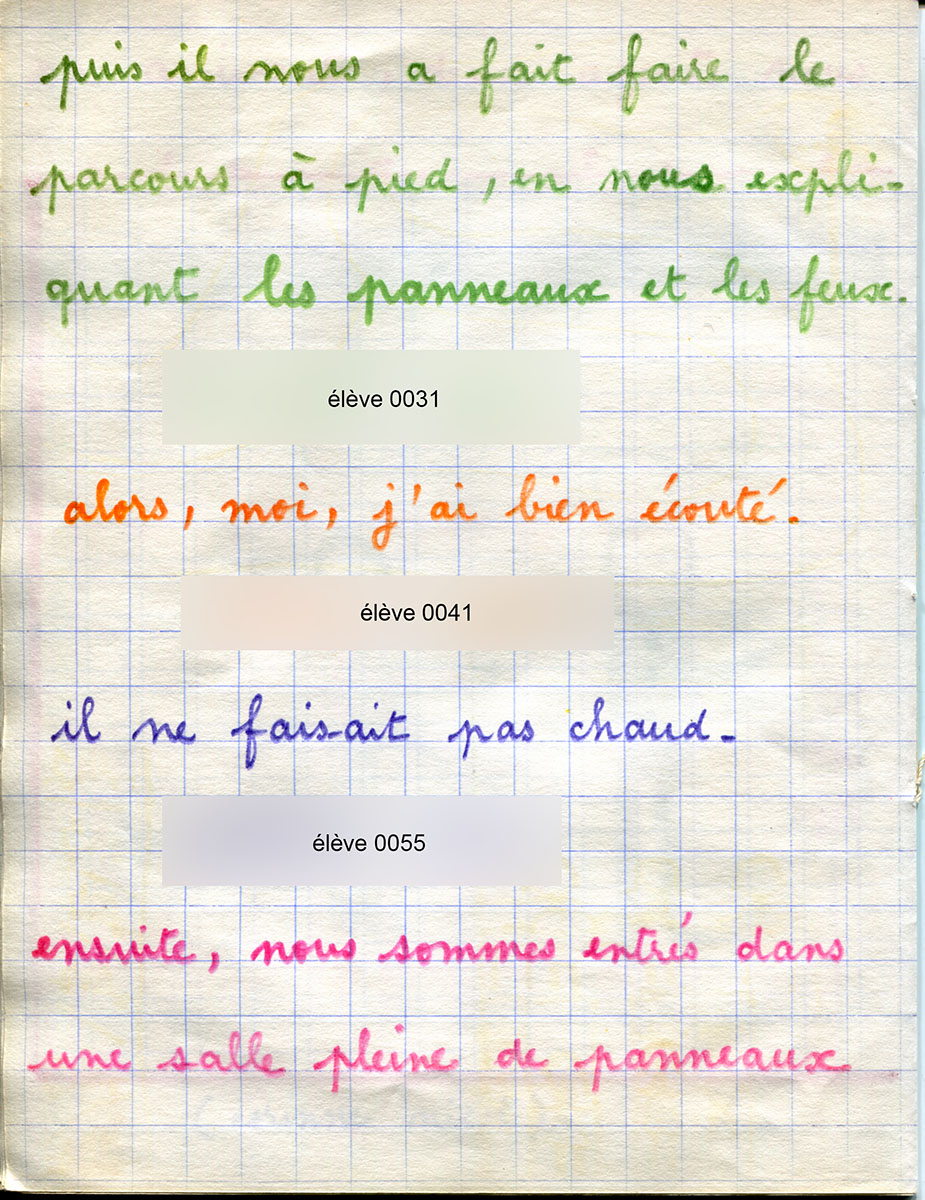 puis il nous a fait faire le
parcours à pied, en nous expli-
quant les panneaux et les feux.
élève 0031
alors, moi, j'ai bien écouté.
élève 0041
il ne faisait pas chaud.
élève 0055
ensuite, nous sommes entrés dans
une salle pleine de panneaux